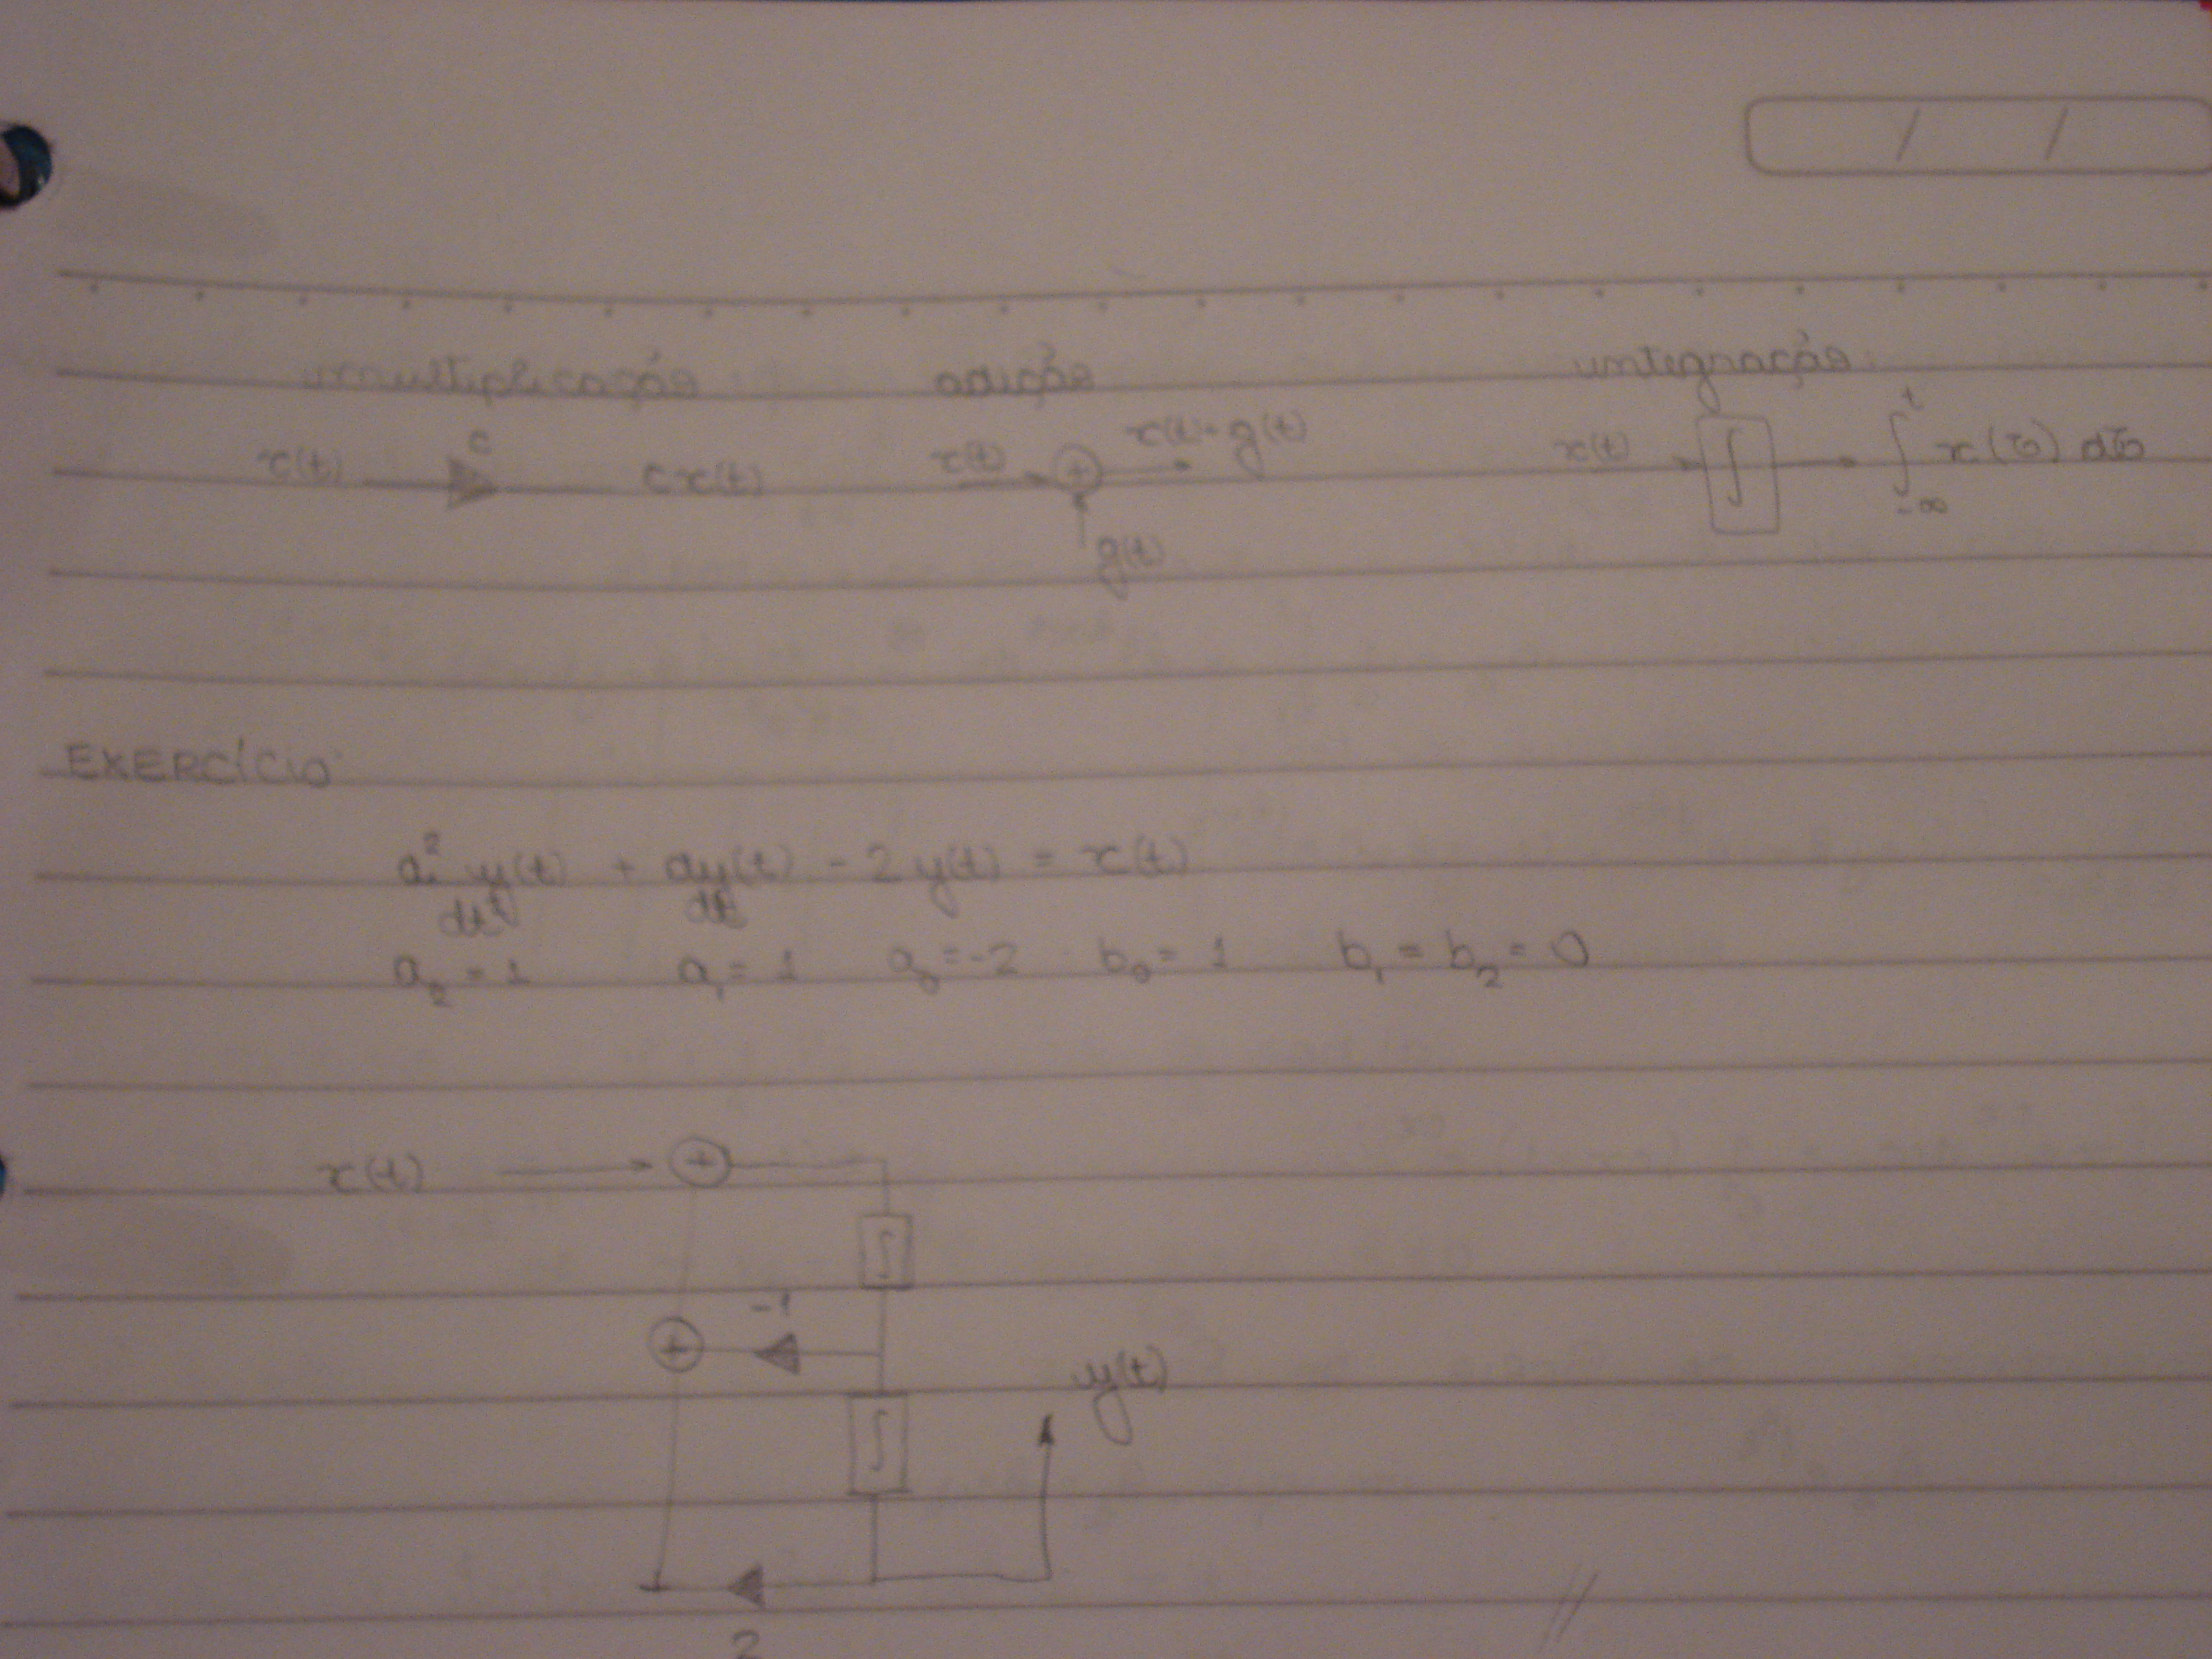 / /
multiplicação adição integração
x(t) c cx(t) x(t) + x(t)+g(t) g(t) x(t) ∫ ∫ t -∞ x(τ) dτ
EXERCÍCIO
d²y(t)/dt² + dy(t)/dt - 2y(t) = x(t)
a₂ = 1 a₁ = 1 a₀ = -2 b₀ = 1 b₁ = b₂ = 0
x(t) +
∫
-1
+
y(t)
∫
2